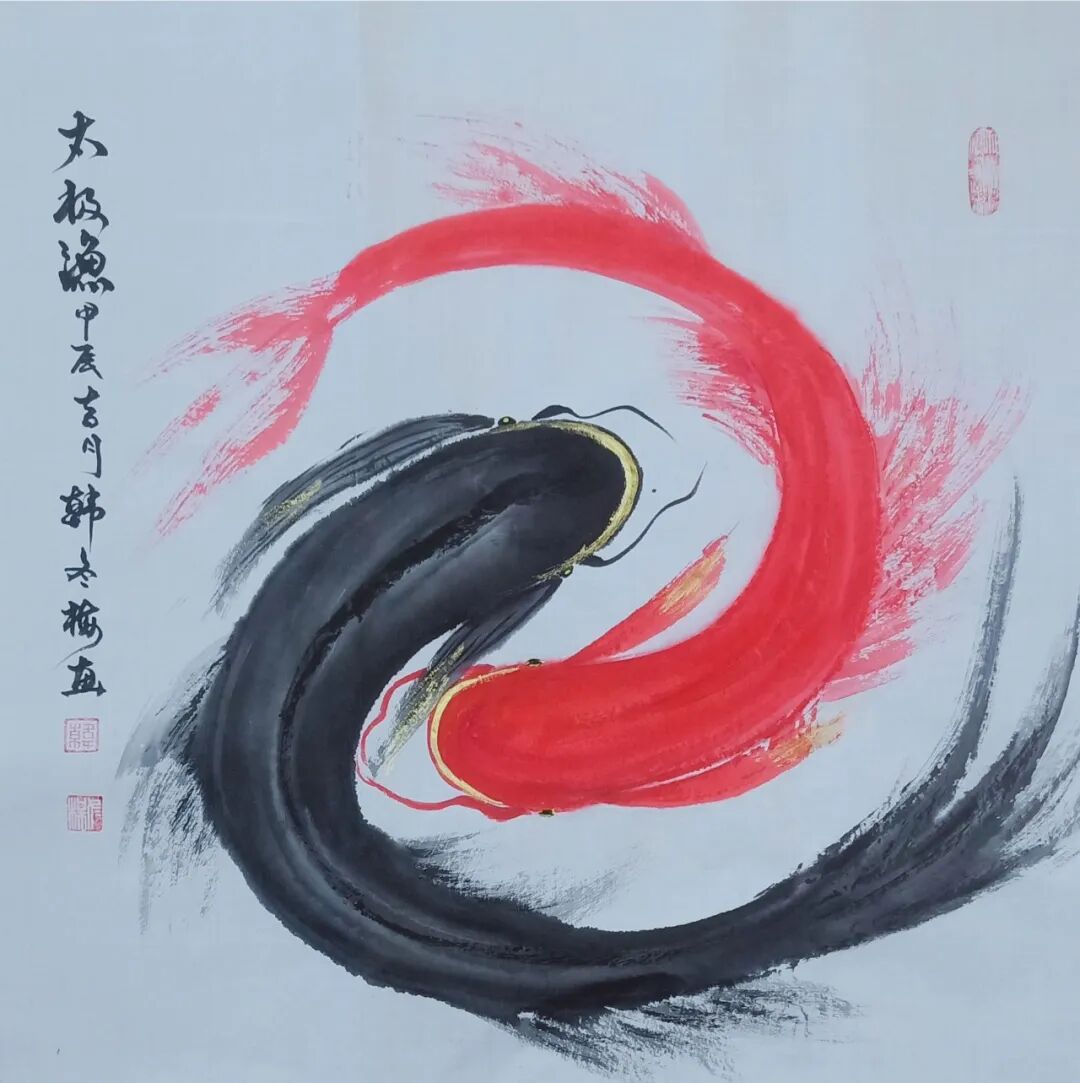 太极渔甲辰吉月韩冬梅画